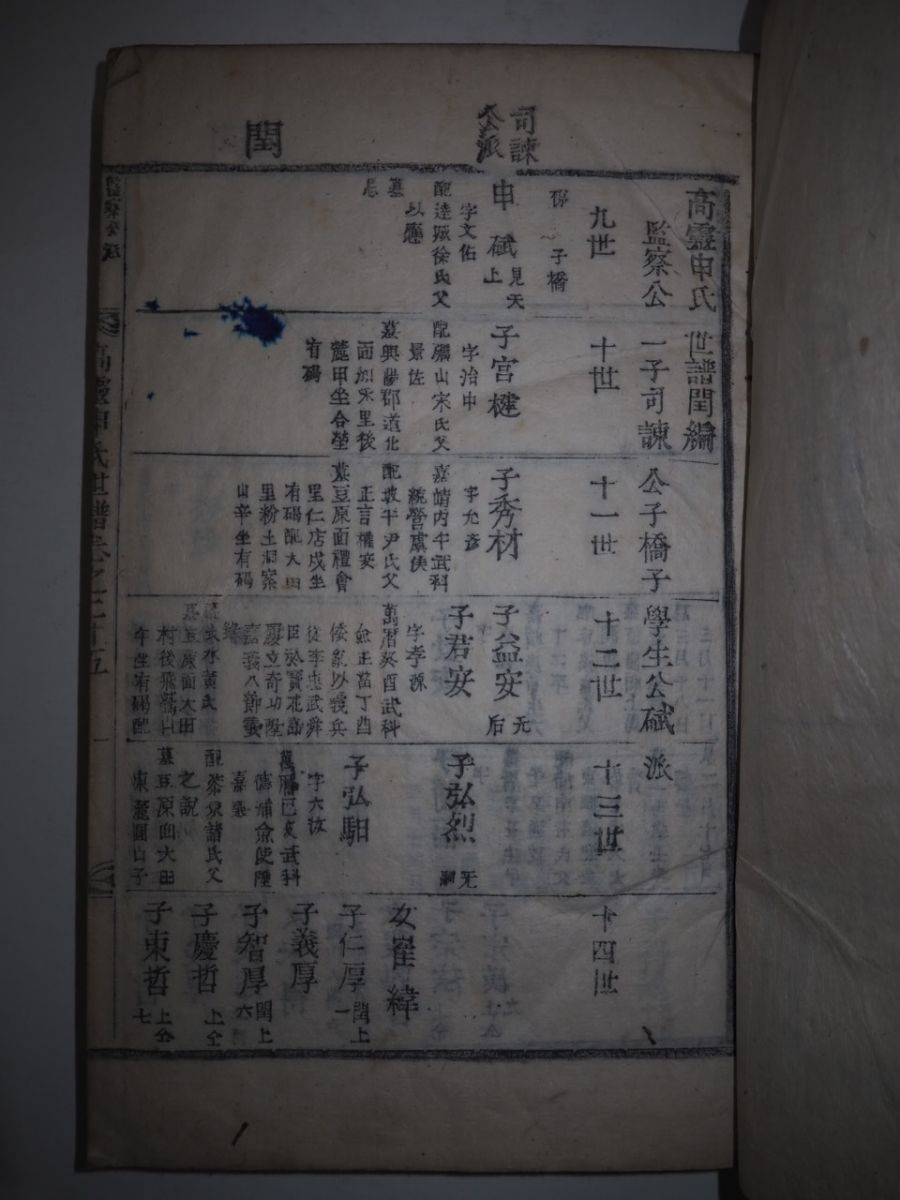 司諫
公派
閏
高靈申氏世譜閏編
監察公一子司諫公子橋子學生公碔派
九世
子橋
申碔 見天上
字文佑
配達城徐氏父
以應
墓
十世
子宮楗
字治中
配礪山宋氏父
景佐
墓興陽郡道化
面加禾里後
麓甲坐合塋
有碣
十一世
子秀材
字允彦
嘉靖丙午武科
統營虞侯
配坡平尹氏父
正言權安
墓豆原面禮會
里仁店戌坐
有碣配大田
里粉土洞案
山辛坐有碣
十二世
子益安 无后
子若安
字孝源
萬曆癸酉武科
僉正當丁酉
倭亂以義兵
從李忠武舜
臣於寶花島
屢立奇功陞
嘉義八節
水黃氏
原面大田
村後飛鵝山
午坐有碣配
十三世
子弘烈 无嗣
子弘馹
字六汝
萬曆己亥武科
僉使陞
嘉善
配諸氏父
之說
墓豆原面大田
東麓國山子
十四世
女崔緯
子仁厚 閏上一
子義厚
子智厚 閏上六
子慶哲 上仝
子東哲 上仝七
高靈申氏世譜卷之二十五 一